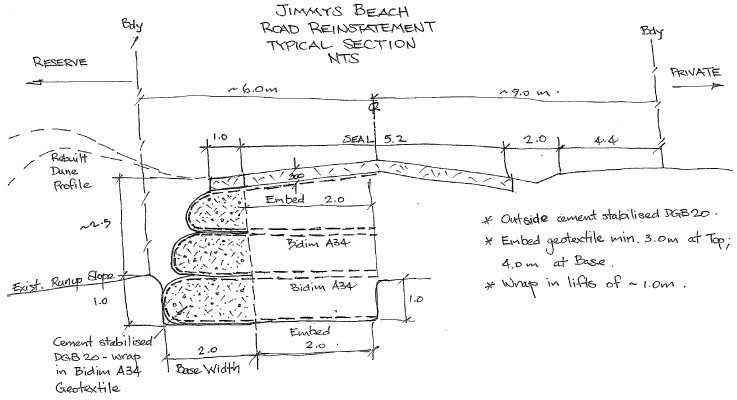 JIMMYS BEACH
ROAD REINSTATEMENT
TYPICAL SECTION
NTS
Bdy
Bdy
RESERVE
PRIVATE
~6.0m
~9.0m.
1.0
SEAL 5.2
2.0
4.4
Rebuilt
Dune
Profile
300
Embed 2.0
~2.5
Bidim A34
Bidim A34
Exist. Runup Slope
1.0
1.0
Embed
2.0
2.0
Base Width
Cement stabilised
DGB20 - wrap
in Bidim A34
Geotextile
* Outside cement stabilised DGB20.
* Embed geotextile min. 3.0m at Top;
4.0m at Base.
* Wrap in lifts of ~1.0m.